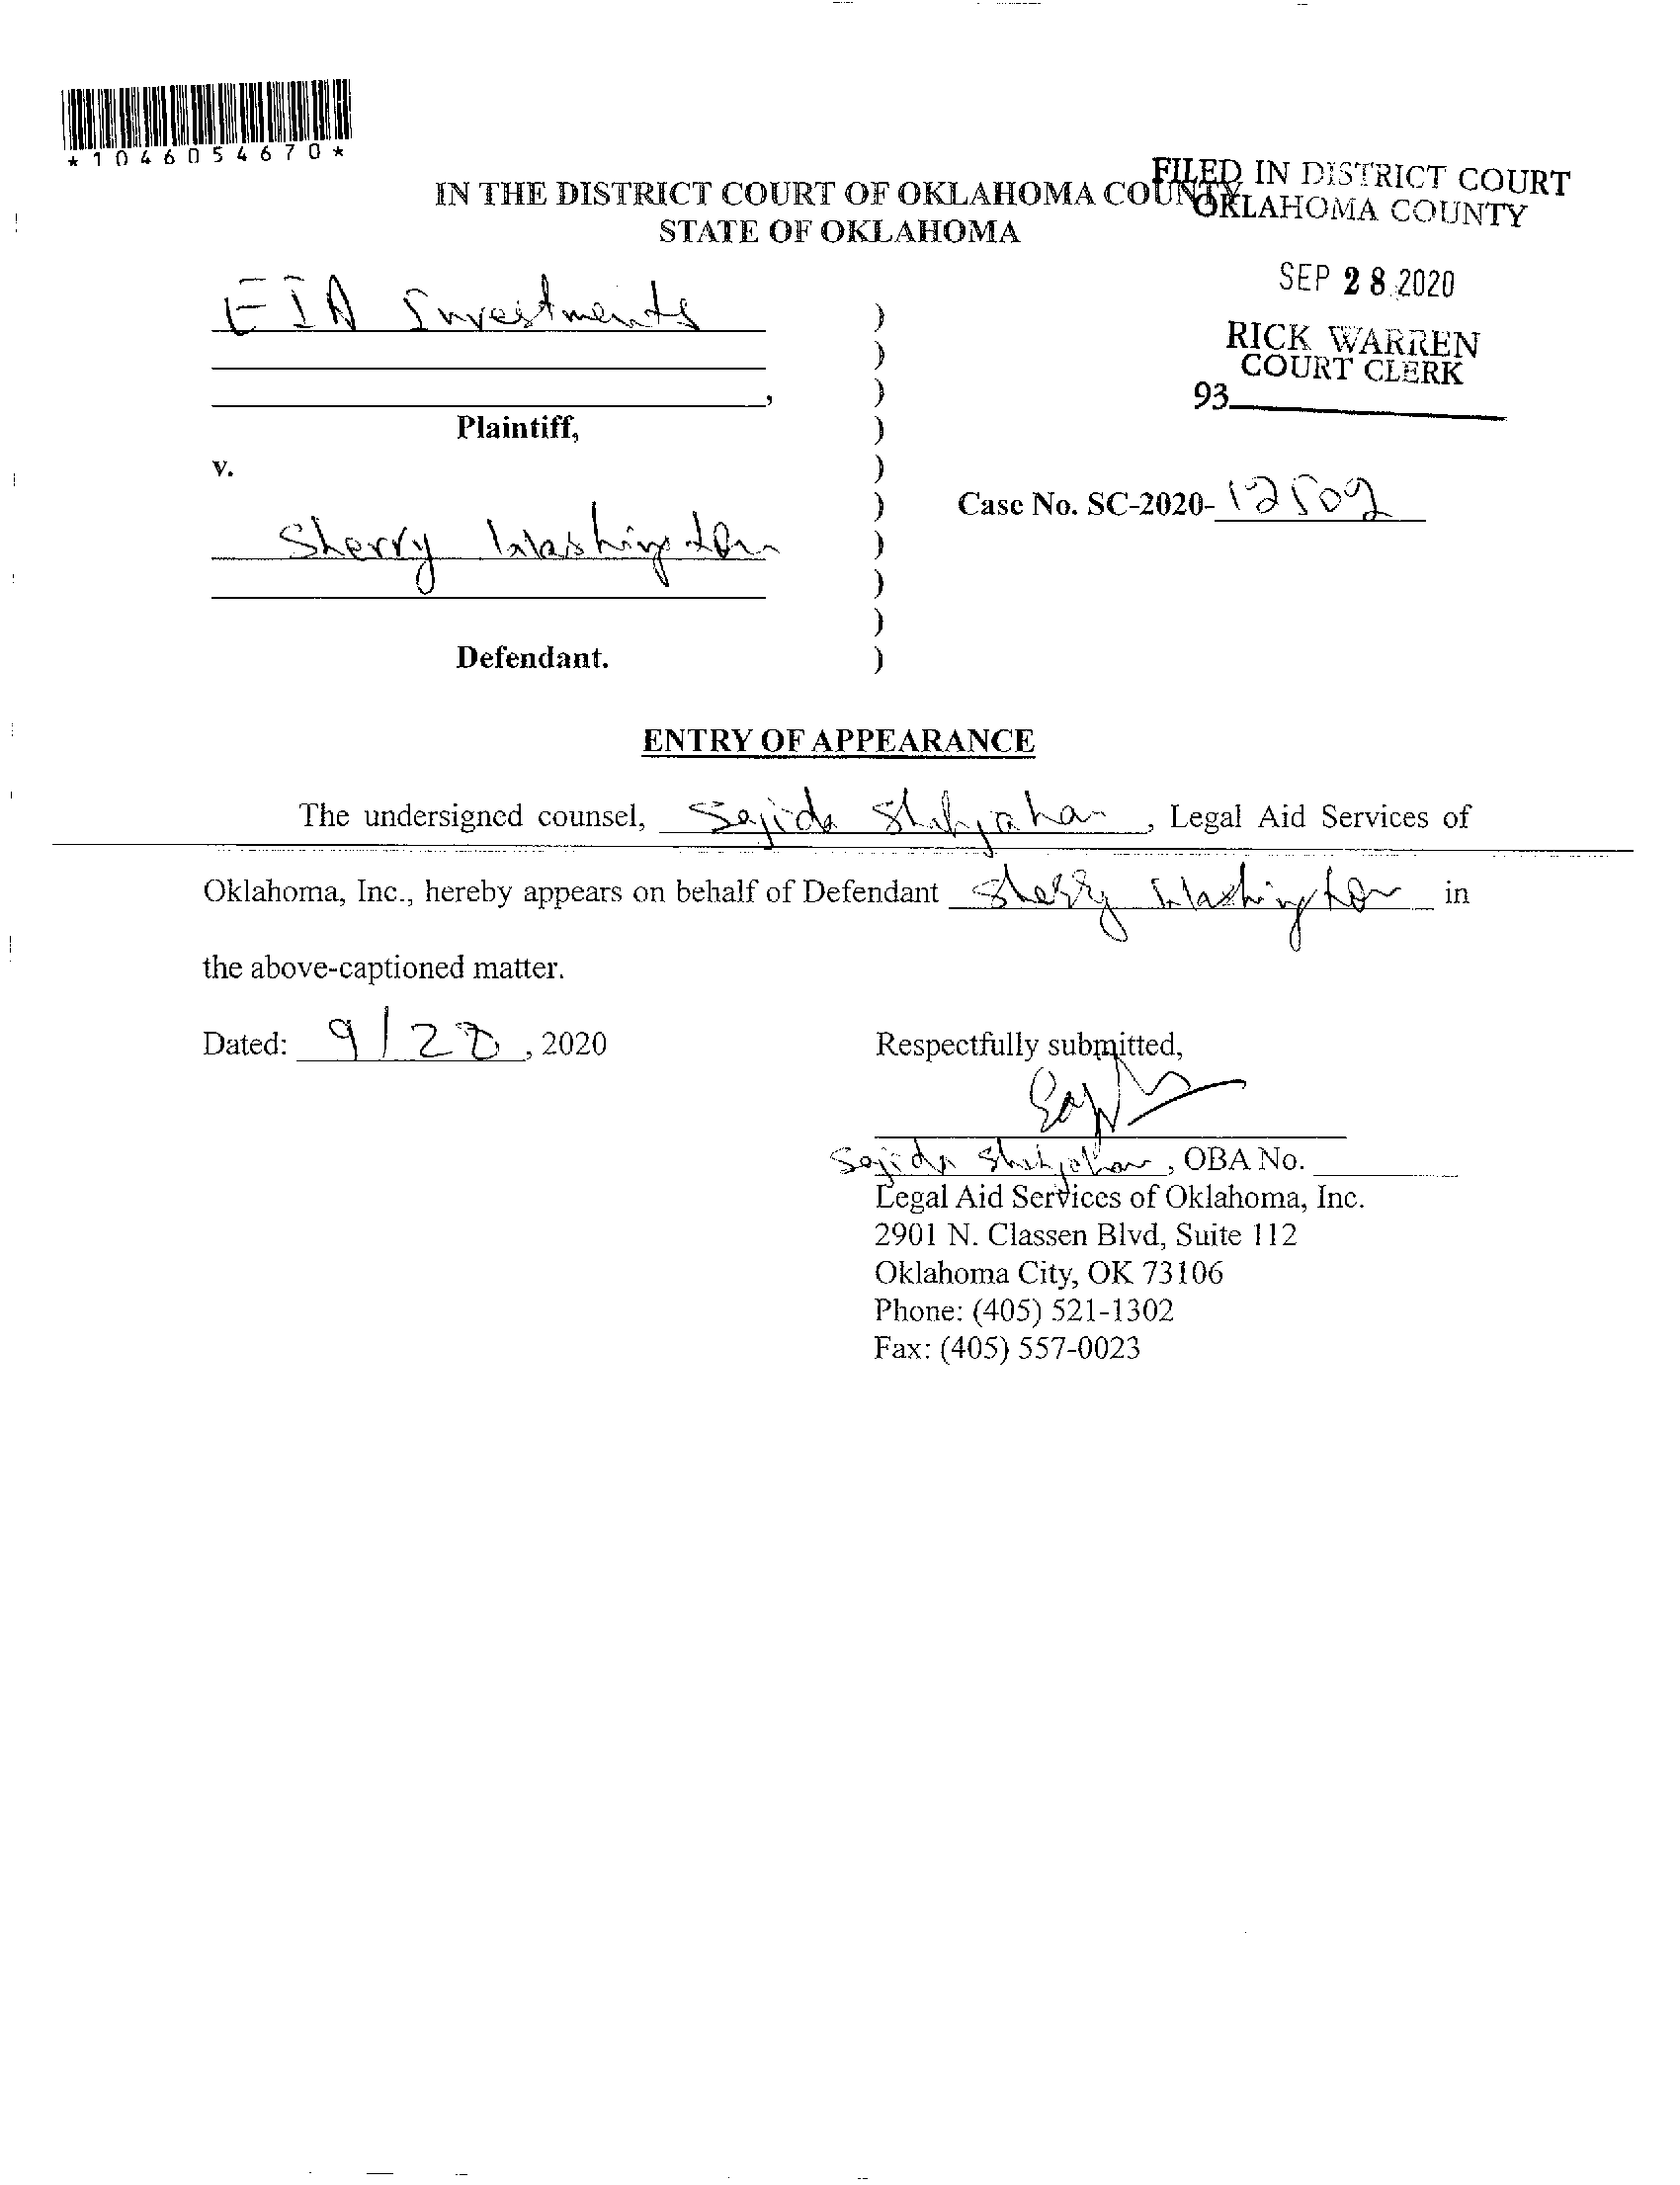 *1046054670*
IN THE DISTRICT COURT OF OKLAHOMA COUNTY
STATE OF OKLAHOMA
FILED IN DISTRICT COURT
OKLAHOMA COUNTY
SEP 28 2020
RICK WARREN
COURT CLERK
93
EIA Investments
,
Plaintiff,
v.
Sherry Washington
Defendant.
)
)
)
)
)
)
)
)
)
)
Case No. SC-2020-12509
ENTRY OF APPEARANCE
The undersigned counsel, Sajida Shahjahan, Legal Aid Services of
Oklahoma, Inc., hereby appears on behalf of Defendant Sherry Washington in
the above-captioned matter.
Dated: 9/28, 2020
Respectfully submitted,
Sajida Shahjahan, OBA No.
Legal Aid Services of Oklahoma, Inc.
2901 N. Classen Blvd, Suite 112
Oklahoma City, OK 73106
Phone: (405) 521-1302
Fax: (405) 557-0023